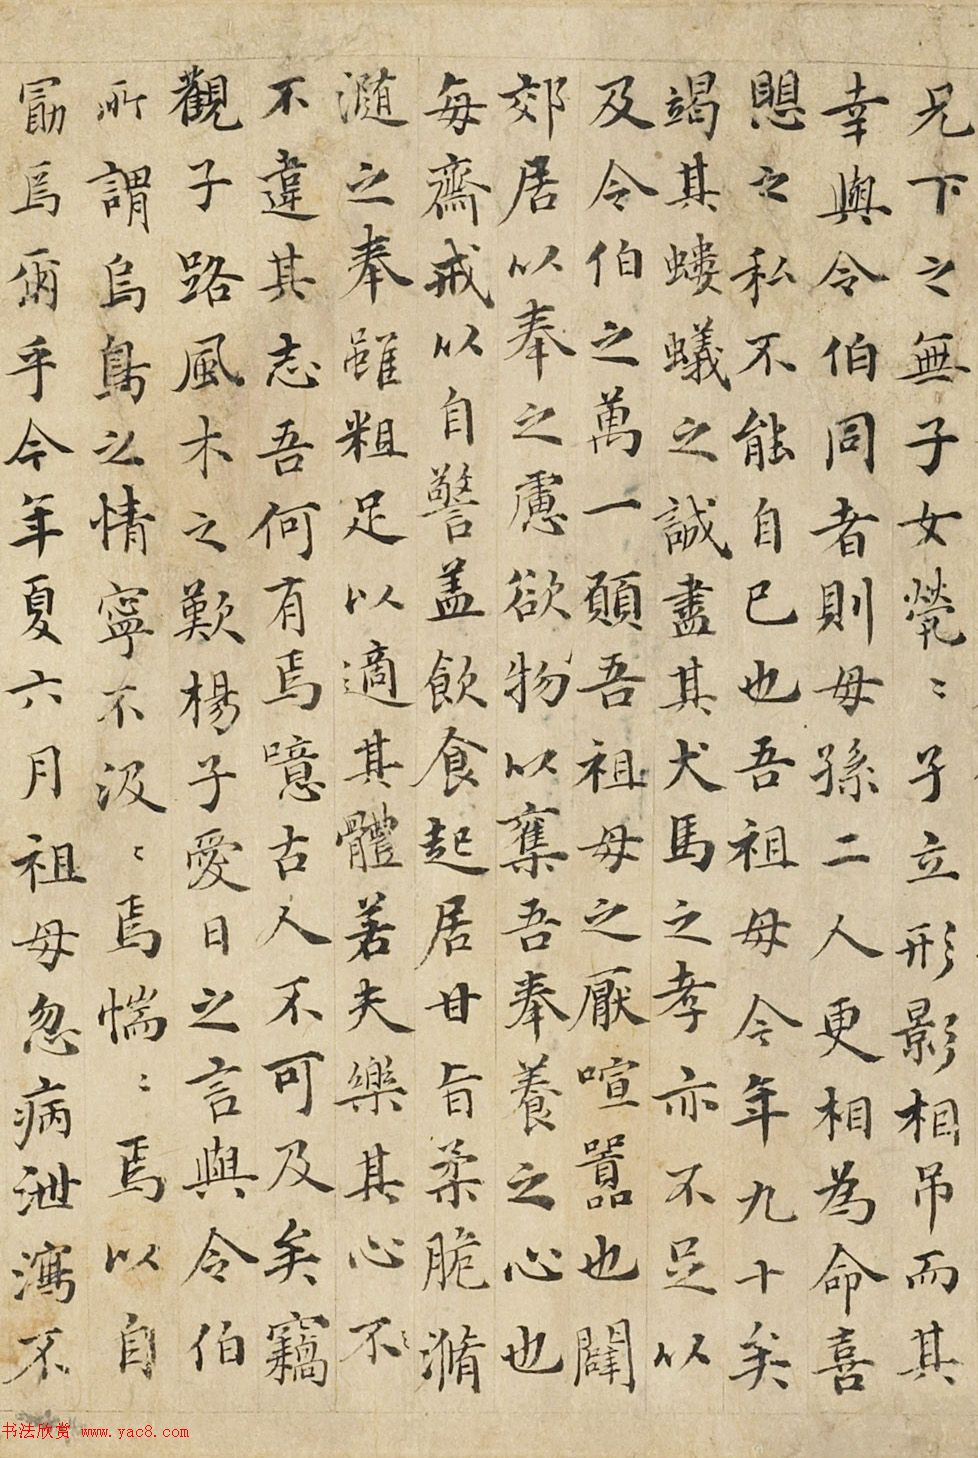 兄下之無子女煢〻孑立形影相吊而其
幸與令伯同者則母孫二人更相為命喜
思之私不能自已也吾祖母今年九十矣
竭其螻蟻之誠盡其犬馬之孝亦不足以
及令伯之萬一願吾祖母之厭喧囂也闢
郊居以奉之慮欲物以奪吾奉養之心也
每齋戒以自警盖飲食起居甘旨柔脆滫
瀡之奉雖粗足以適其體若夫樂其心不
不違其志吾何有焉噫古人不可及矣竊
觀子路風木之歎楊子愛日之言與令伯
所謂烏鳥之情寧不汲〻焉惴〻焉以自
勗焉爾乎今年夏六月祖母忽病泄瀉不
书法欣赏 www.yac8.com